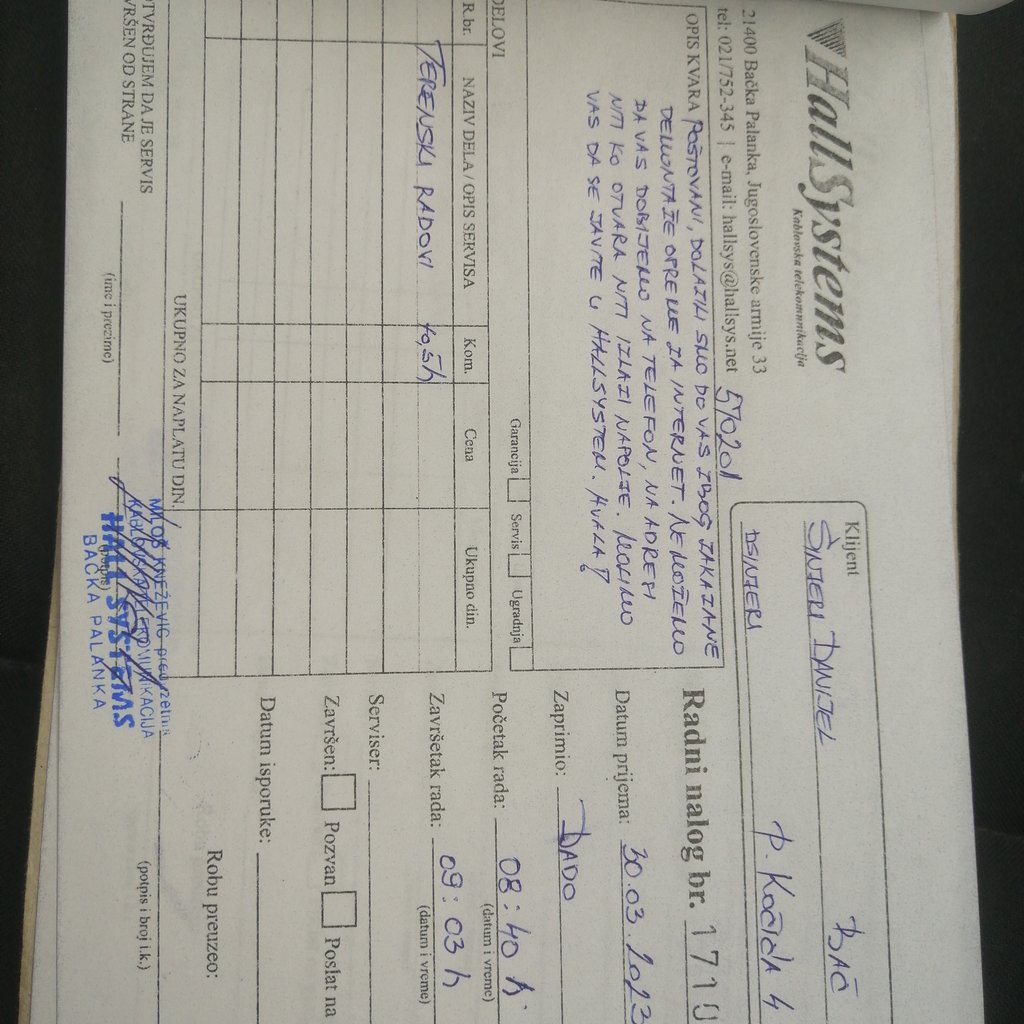 HallSystems
Kablovska telekomunikacija
21400 Bačka Palanka, Jugoslovenske armije 33
tel: 021/752-345 | e-mail: hallsys@hallsys.net
570201
Klijent
ŠINTERI DANIJEL BAČ
DSINTERI P. KOČIĆA 4
OPIS KVARA POŠTOVANI, DOLAZILI SMO DO VAS ZBOG ZAKAZANE
DEMONTAŽE OPREME ZA INTERNET. NE MOŽEMO
DA VAS DOBIJEMO NA TELEFON, NA ADRESI
NITI KO OTVARA NITI IZLAZI NAPOLJE. MOLIMO
VAS DA SE JAVITE U HALLSYSTEM. HVALA!
Garancija Servis Ugradnja
DELOVI
R.br. NAZIV DELA / OPIS SERVISA Kom. Cena Ukupno din.
TERENSKI RADOVI 0,5h
UKUPNO ZA NAPLATU DIN.
Radni nalog br. 1710
Datum prijema: 30.03.2023
Zaprimio: DADO
Početak rada: 08:40 h
(datum i vreme)
Završetak rada: 09:03 h
(datum i vreme)
Serviser:
Završen: Pozvan Poslat na
Datum isporuke:
Robu preuzeo:
(potpis i broj i.k.)
OTVRĐUJEM DA JE SERVIS
VRŠEN OD STRANE
(ime i prezime)
(potpis)
MILOŠ KNEŽEVIĆ preduzetnik
KABLOVSKA TELEKOMUNIKACIJA
HALL SYSTEMS
BAČKA PALANKA